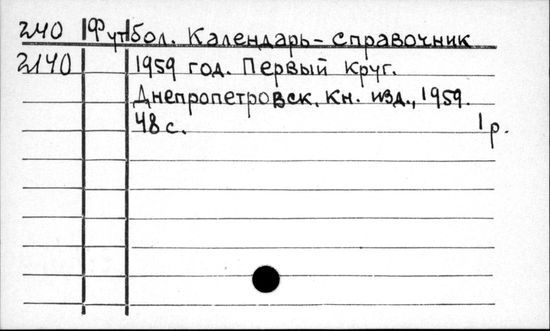 240 Футбол. Календарь-справочник
2140 1959 год. Первый круг.
Днепропетровск, Кн. изд., 1959.
48 с. 1 р.